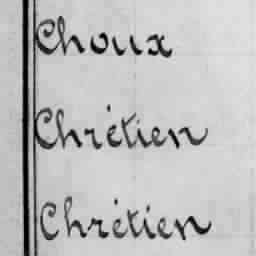 Choux
Chrétien
Chrétien